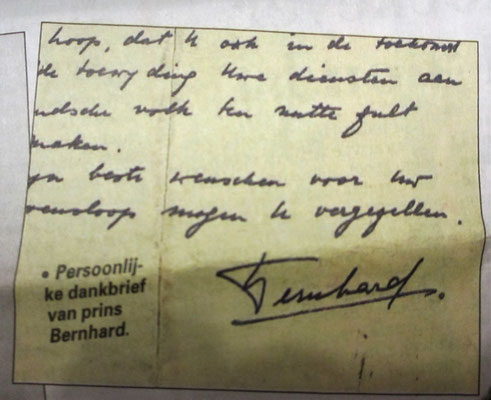 hoop, dat U ook in de toekomst
toewyding Uwe diensten aan
ndsche volk ten nutte zult
maken.
yn beste wenschen voor Uw
vensloop mogen U vergezellen.
Bernhard.
• Persoonlij-
ke dankbrief
van prins
Bernhard.